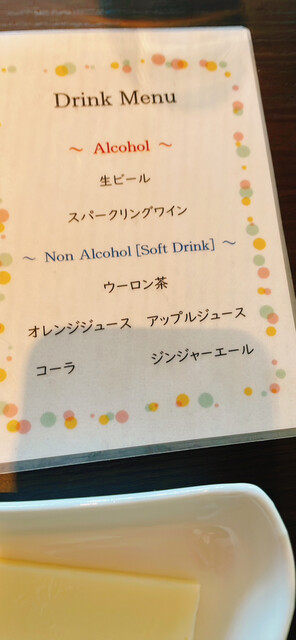 Drink Menu
～ Alcohol ～
生ビール
スパークリングワイン
～ Non Alcohol [Soft Drink] ～
ウーロン茶
オレンジジュース アップルジュース
コーラ ジンジャーエール